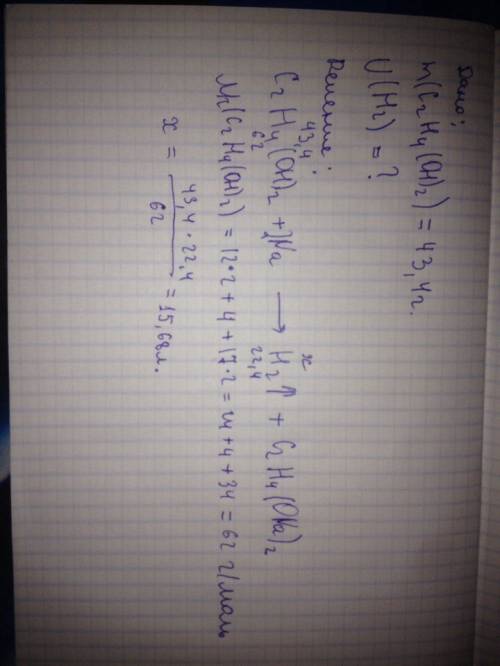 Дано:
m(C₂H₄(OH)₂) = 43,4г.
U(H₂) = ?
Решение:
43,4 x
C₂H₄(OH)₂ + 2Na → H₂↑ + C₂H₄(ONa)₂
62 22,4
Mr(C₂H₄(OH)₂) = 12·2 + 4 + 17·2 = 24 + 4 + 34 = 62 г/моль
x = 43,4 · 22,4 / 62 = 15,68л.